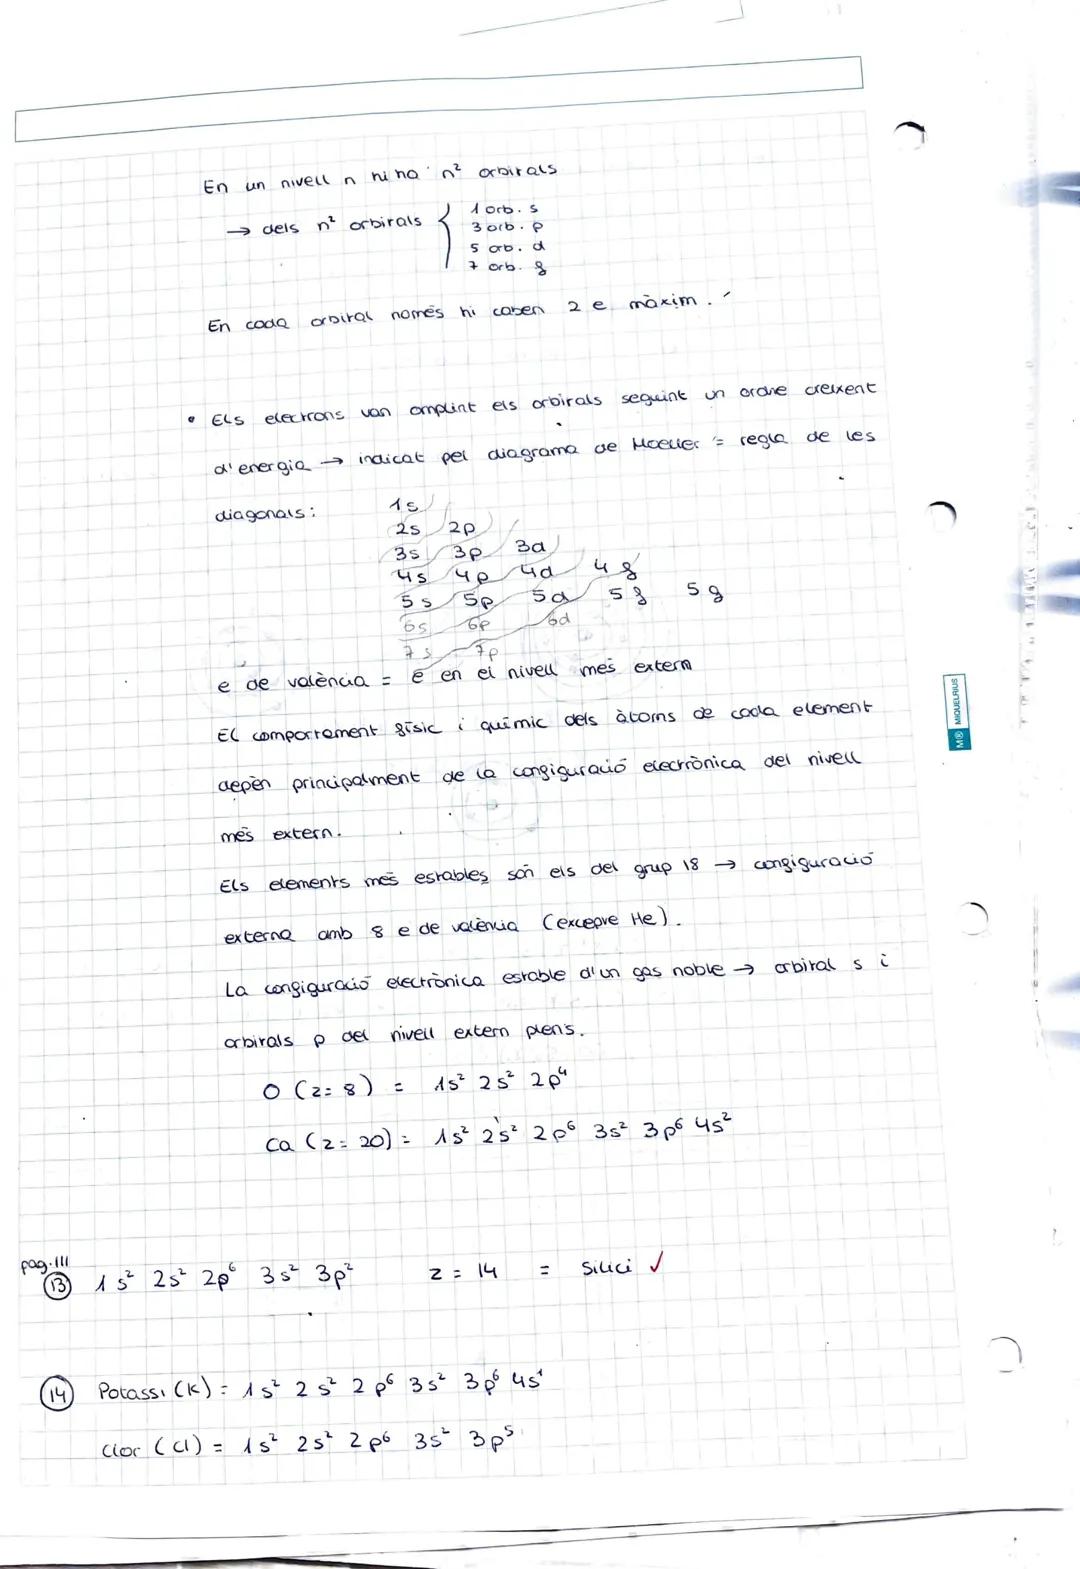 En un nivell n hi ha n² orbitals
→ dels n² orbitals { 1 orb. s
3 orb. p
5 orb. d
7 orb. f
En cada orbital només hi caben 2 e màxim.
• Els electrons van omplint els orbitals seguint un ordre creixent
d'energia → indicat pel diagrama de Moeller = regla de les
diagonals:
1s
2s 2p
3s 3p 3d
4s 4p 4d 4f
5s 5p 5d 5f 5g
6s 6p 6d
7s 7p
e de valència = e en el nivell més extern
El comportament físic i químic dels àtoms de cada element
depèn principalment de la configuració electrònica del nivell
més extern.
Els elements més estables són els del grup 18 → configuració
externa amb 8 e de valència (excepte He).
La configuració electrònica estable d'un gas noble → orbital s i
orbitals p del nivell extern plens.
O (z=8) = 1s² 2s² 2p⁴
Ca (z=20) = 1s² 2s² 2p⁶ 3s² 3p⁶ 4s²
pag.111
13 1s² 2s² 2p⁶ 3s² 3p² z = 14 = Silici ✓
14 Potassi (K) = 1s² 2s² 2p⁶ 3s² 3p⁶ 4s¹
Clor (Cl) = 1s² 2s² 2p⁶ 3s² 3p⁵
M® MIQUELRIUS